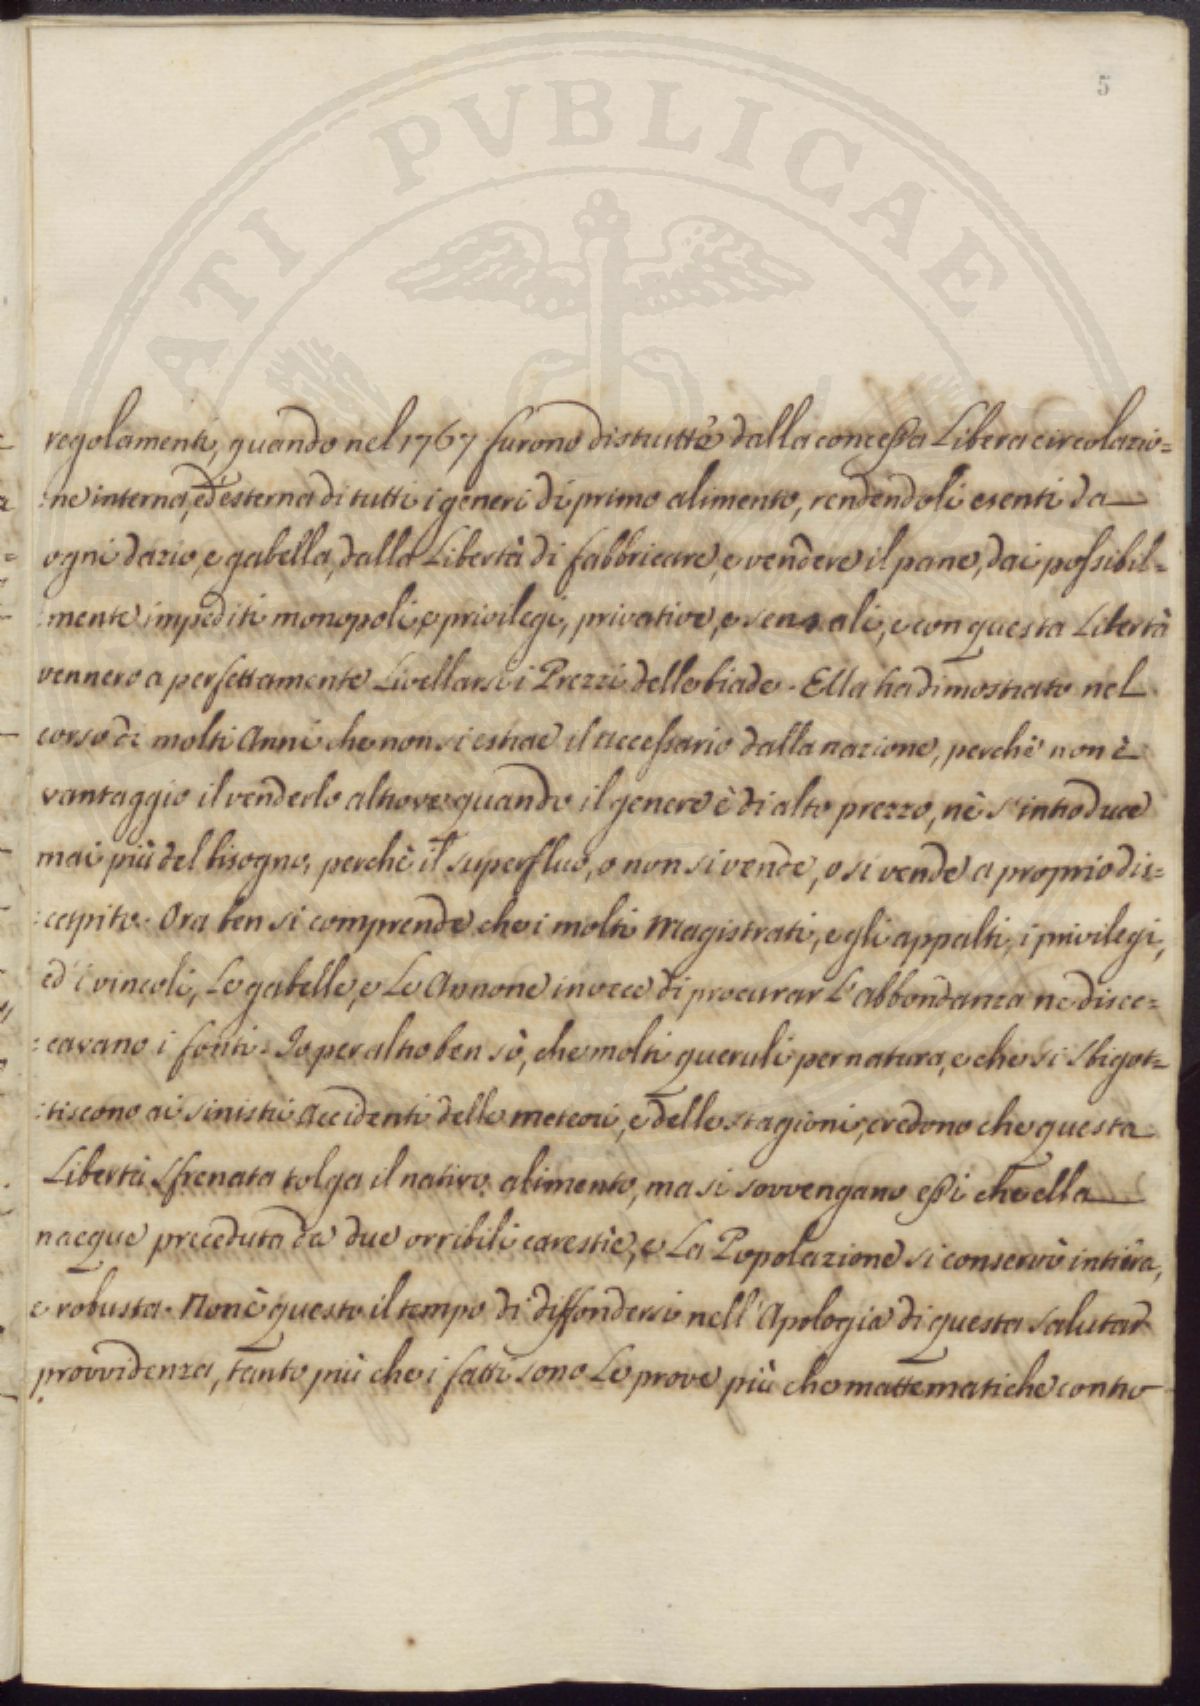 5
ATI PVBLICAE
regolamenti, quando nel 1767 furono distrutte dalla concessa Libera circolazio=
:ne interna, ed esterna di tutti i generi di primo alimento, rendendoli esenti da
ogni dazio, e gabella, dalla Libertà di fabbricare, e vendere il pane, dai possibil=
:mente impediti monopoli, e privilegi, privative, e sensali, e con questa Libertà
vennero a perfettamente Livellarsi i Prezzi delle biade. Ella ha dimostrato nel
corso di molti Anni che non si estrae il necessario dalla nazione, perchè non è
vantaggio il venderlo altrove quando il genere è di alto prezzo, nè s'introduce
mai più del bisogno, perchè il superfluo, o non si vende, o si vende a proprio dis=
:capito. Ora ben si comprende che i molti Magistrati, e gli appalti, i privilegi,
ed i vincoli, Le gabelle, e Le Annone in vece di procurar L'abbondanza ne disec=
:cavano i fonti. Io per altro ben sò, che molti queruli per natura, e che si sbigot=
:tiscono ai sinistri accidenti delle meteori, e delle stagioni, credono che questa
Libertà sfrenata tolga il nativo alimento, ma si sovvengano essi che ella
nacque preceduta da due orribili carestie, e La Popolazione si conservò intiera,
e robusta. Non è questo il tempo di diffondersi nell'Apologia di questa salutar
provvidenza, tanto più che i fatti sono Le prove più che mattematiche contro